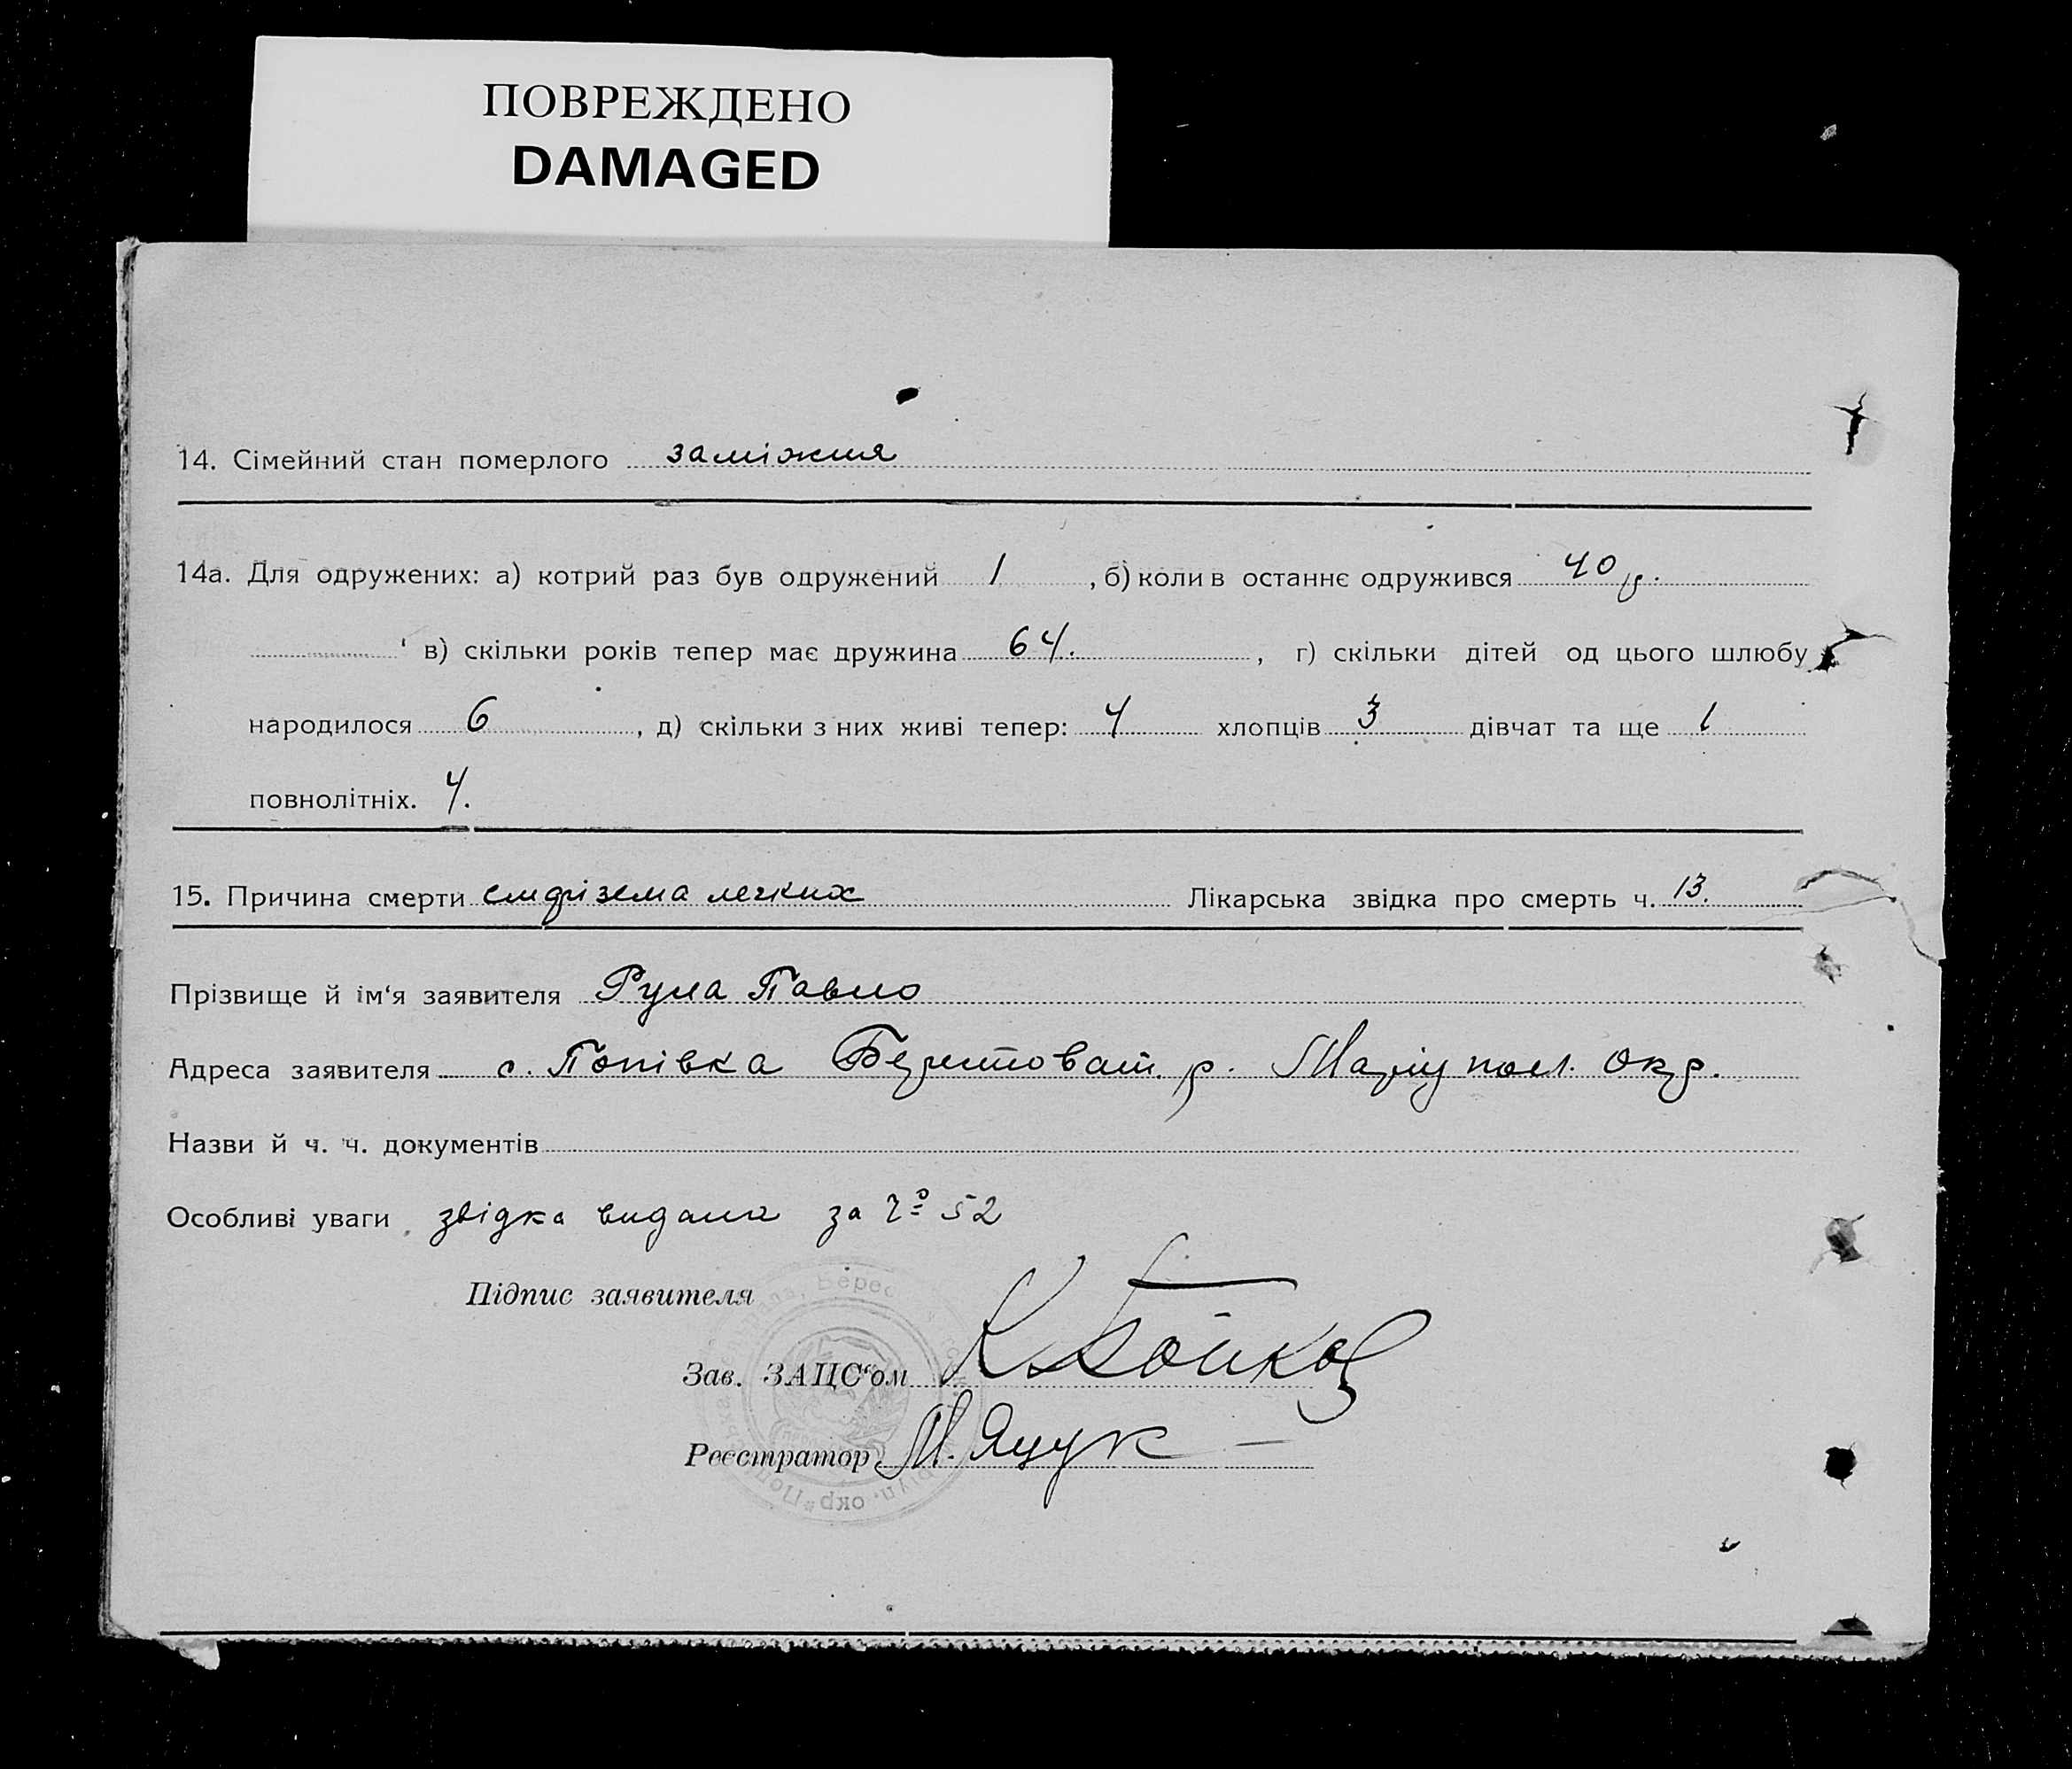 ПОВРЕЖДЕНО
DAMAGED
14. Сімейний стан померлого заміжня
14а. Для одружених: а) котрий раз був одружений 1 , б) коли в останнє одружився 40 р.
в) скільки років тепер має дружина 64. , г) скільки дітей од цього шлюбу
народилося 6 , д) скільки з них живі тепер: 4 хлопців 3 дівчат та ще 1
повнолітніх. 4.
15. Причина смерти емфізема легких Лікарська звідка про смерть ч. 13.
Прізвище й ім‘я заявителя Рула Павло
Адреса заявителя с. Попівка Берестоват. р. Маріупол. окр.
Назви й ч. ч. документів
Особливі уваги звідка видана за № 52
Підпис заявителя
Зав. ЗАЦС‘ом К Бойко
Реєстратор М. Яцук